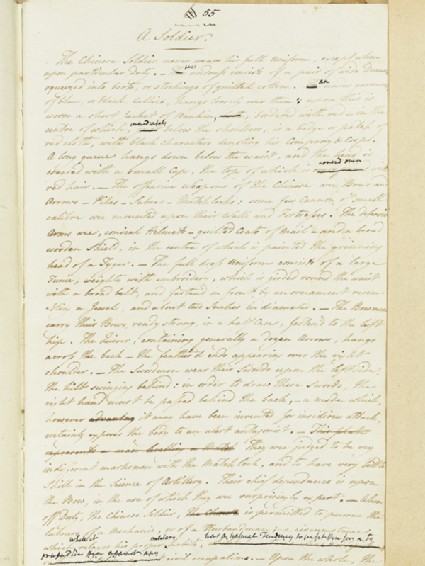 55
A Soldier.
The Chinese Soldier never wears his full Uniform, except when
upon particular Duty. — The undress consists of a pair of wide Drawers
squeezed into boots, or stockings of quilted cotton.
of blue, or black cotton, hangs loosely over them; upon this is
worn a short Jacket of Nankeen, bordered with red, in the
center of which before the shoulders, is a badge or patch of
red cloth, with black characters denoting his Company or Corps.
A long queue hangs down below the waist, and the head is
covered with a small Cap, the top of which is
red hair. — The offensive weapons of the Chinese are Bows and
Arrows — Pikes — Sabres — Matchlocks: some few Cannon of small
calibre are mounted upon their Walls and Fortresses. The defensive
Arms are, conical Helmets — quilted Coats of Mail — and a broad
wooden Shield, in the center of which is painted the grinning
head of a Tiger. — The full dress Uniform consists of a large
Tunic, with embroidery, which is girded round the waist
with a broad belt, and fastened in front by an ornament
like a Jewel, and about two Inches in diameter. — The Bowmen
carry their Bows, ready strung, in a half Case, fastened to the left
hip. The Quiver, containing generally a dozen Arrows, hangs
across the back — the feathered ends appearing over the right
shoulder. — The Swordsmen wear their Swords upon the left side,
the hilt swinging behind: in order to draw these Swords, the
right hand must be passed behind the back, — a mode which,
however it may have been invented for insidious attack,
certainly exposes the body to an alert antagonist. —
They are judged to be very
indifferent marksmen with the Matchlock, and to have very little
Skill in the Science of Artillery. Their chief dependence is upon
the Bow, in the use of which they are surprisingly expert. — When
off Duty, the Chinese Soldier, is permitted to pursue the
labours of a Mechanic, or of a Husbandman; a circumstance
which his proper habits,
civil occupations. — Upon the whole, the